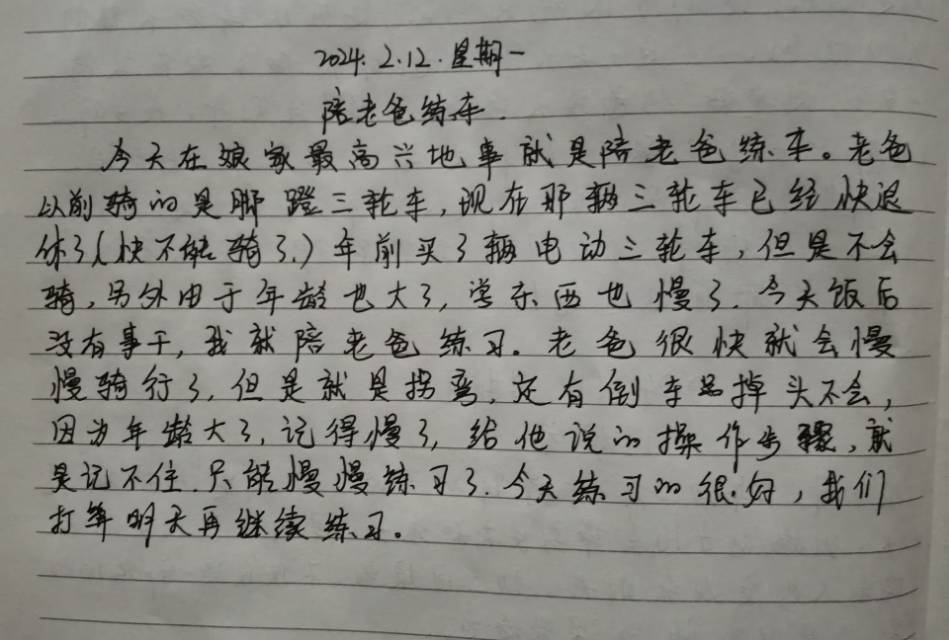 2024.2.12.星期一
陪老爸练车.
今天在娘家最高兴地事就是陪老爸练车。老爸
以前骑的是脚蹬三轮车,现在那辆三轮车已经快退
休了(快不能骑了.)年前买了辆电动三轮车,但是不会
骑,另外由于年龄也大了,学东西也慢了.今天饭后
没有事干,我就陪老爸练习。老爸很快就会慢
慢骑行了,但是就是拐弯,还有倒车掉头不会,
因为年龄大了,记得慢了,给他说的操作步骤,就
是记不住.只能慢慢练习了.今天练习的很好,我们
打算明天再继续练习。